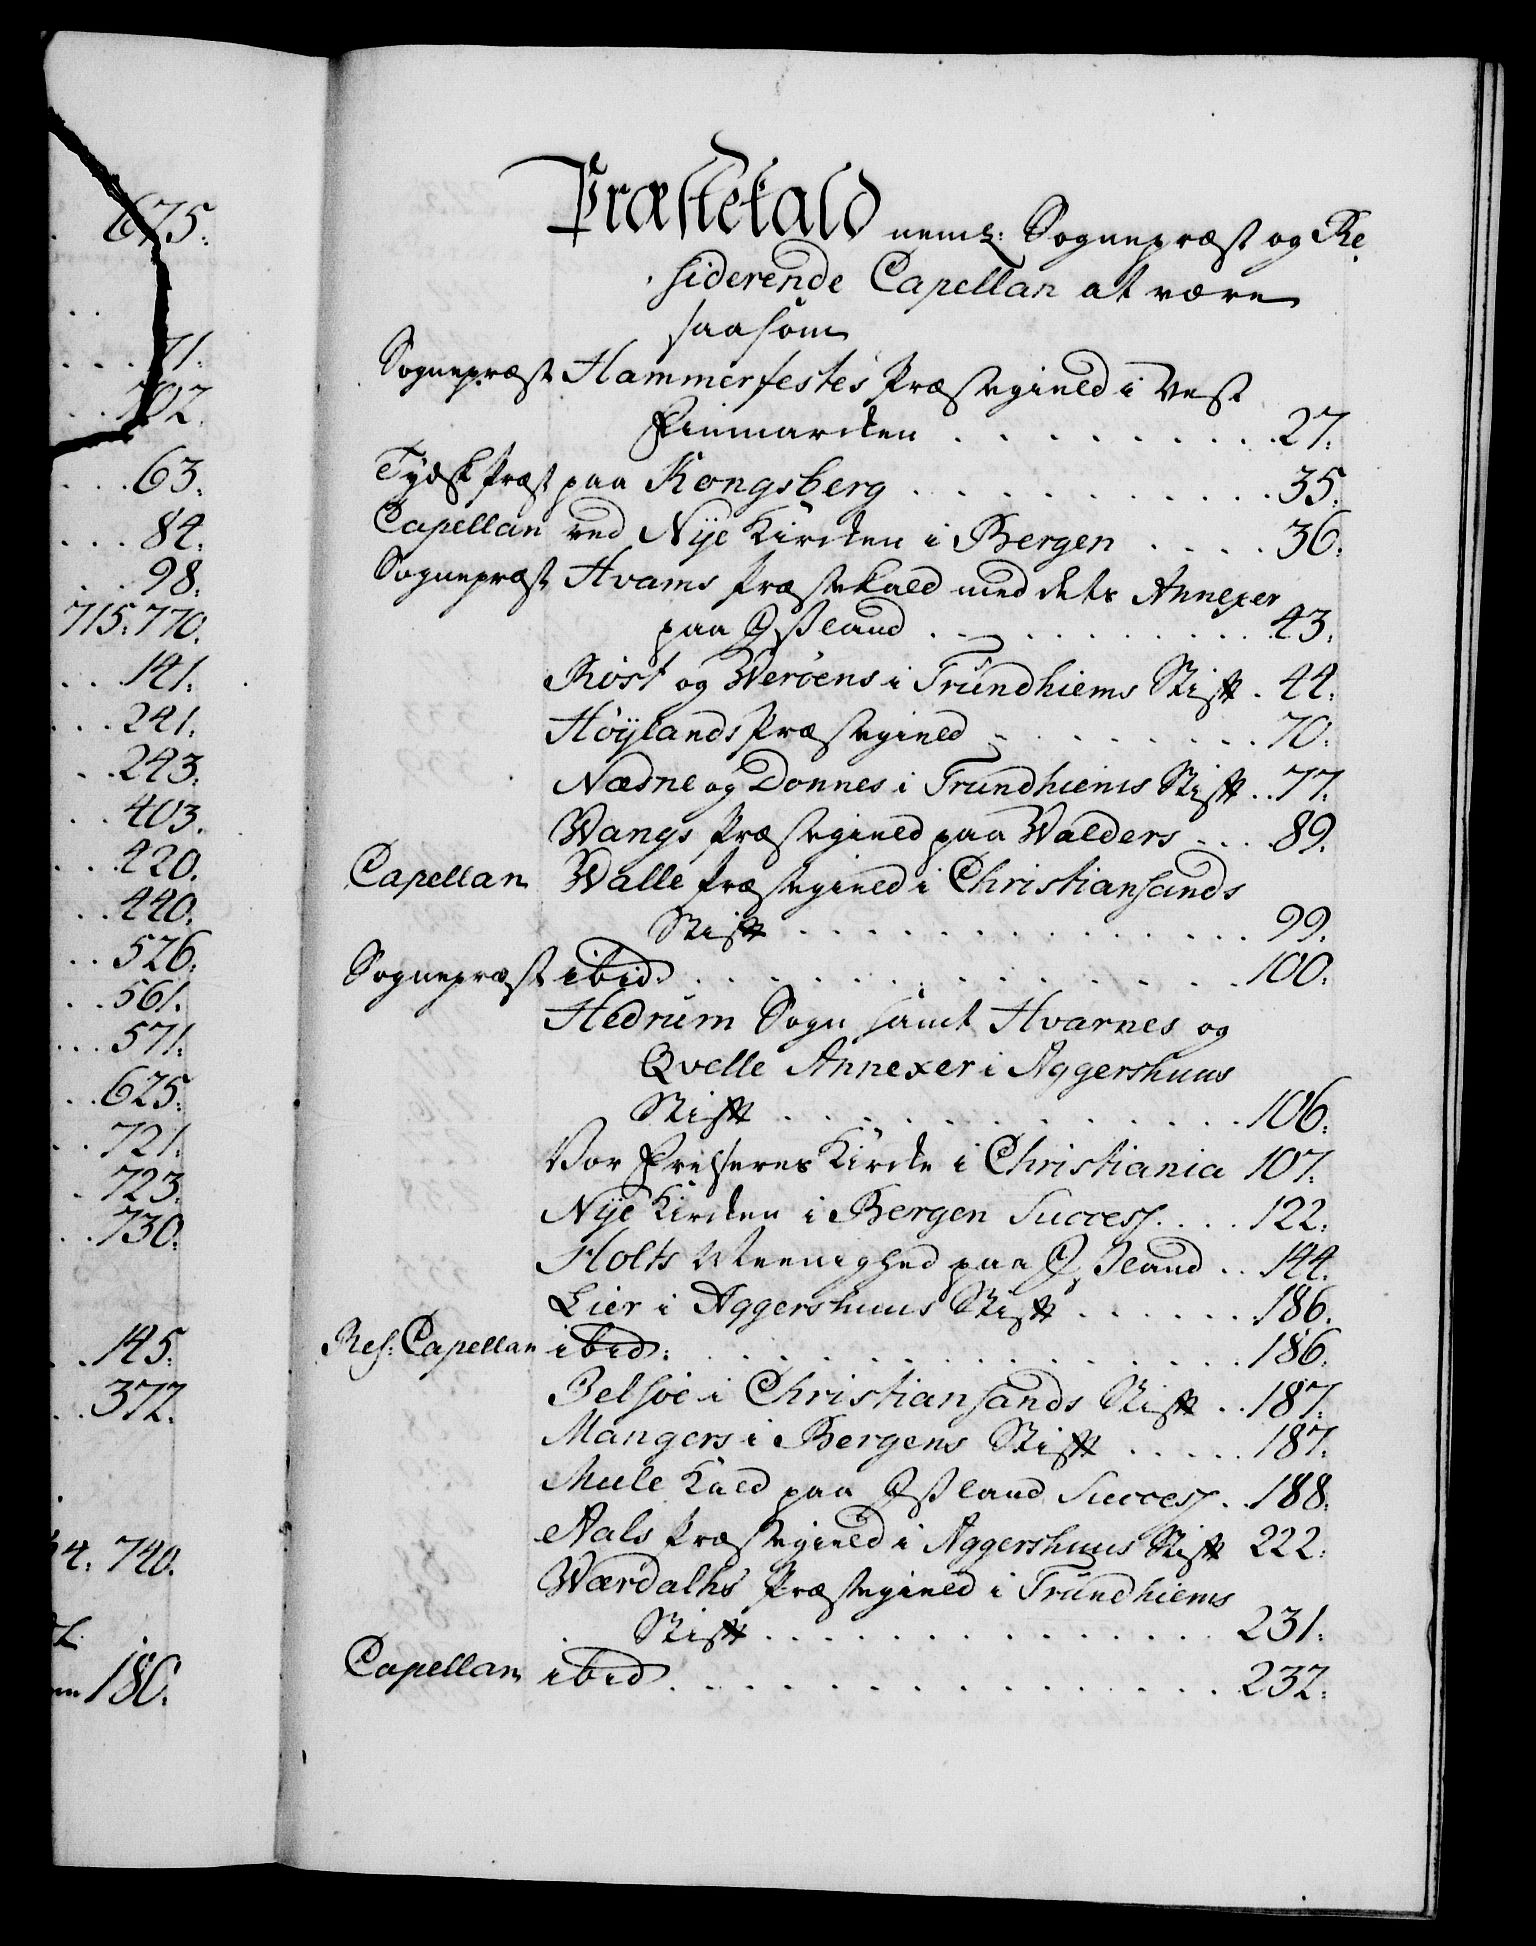 675.
71.
702.
63.
84.
98.
715. 770.
141.
241.
243.
403.
420.
440.
526.
561.
571.
625.
721.
723.
730.
145.
372.
740.
180.
Præstekald neml: Sognepræst og Re
siderende Capellan at være
saasom
Sognepræst Hammerfestes Præstegield i Vest
Finmarcken . . . . . . . . 27.
Tydsk Præst paa Kongsberg . . . . . . . . . . 35.
Capellan ved Nÿe Kircken i Bergen . . . . 36.
Sognepræst Hvams Præstekald med dets Annexer
paa Island . . . . . . . . . . 43.
Røst og Werøens i Trundhiems Stift . 44.
Høÿlands Præstegield . . . . . . . . 70.
Næsne og Dønnes i Trundhiems Stift . . 77.
Wangs Præstegield paa Walders . . . 89.
Capellan Walle Præstegield i Christiansands
Stift . . . . . . . . . . . . . . 99.
Sognepræst ibid. . . . . . . . . . . . . . 100.
Hedrum Sogn samt Hvarnes og
Qvelle Annexer i Aggershuus
Stift . . . . . . . . . . . . . . 106.
Vor Frelseres Kircke i Christiania 107.
Nÿe Kircken i Bergen Success. . . . 122.
Holts Meenighed paa Island . . 144.
Lier i Aggershuus Stift . . . . . . 186.
Res: Capellan ibid: . . . . . . . . . . . . . 186.
Betsøe i Christiansands Stift . . 187.
Mangers i Bergens Stift . . . . . 187.
Mule Kald paa Island Success. . 188.
Aals Præstegield i Aggershuus Stift 222.
Wærdalhs Præstegield i Trundhiems
Stift . . . . . . . . . . . . . . 231.
Capellan ibid. . . . . . . . . . . . . . 232.